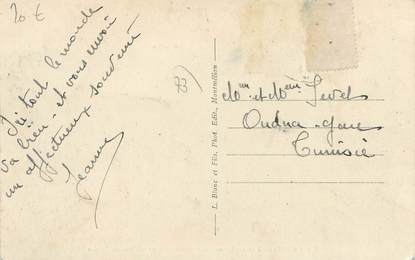 20 €
Ici tout le monde
va bien - et vous envoi
un affectueux souvenir
Jeanne
L. Blanc et Fils, Phot. Edit., Montmélian
Mr et Mme Level
Oudna-gare
Tunisie